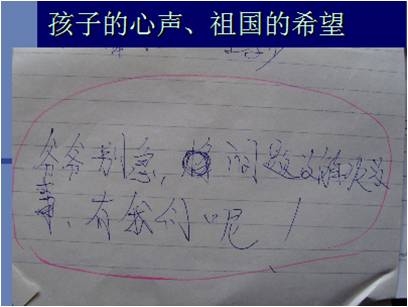 孩子的心声、祖国的希望
爷爷别急，问题没解决没
事，有我们呢！